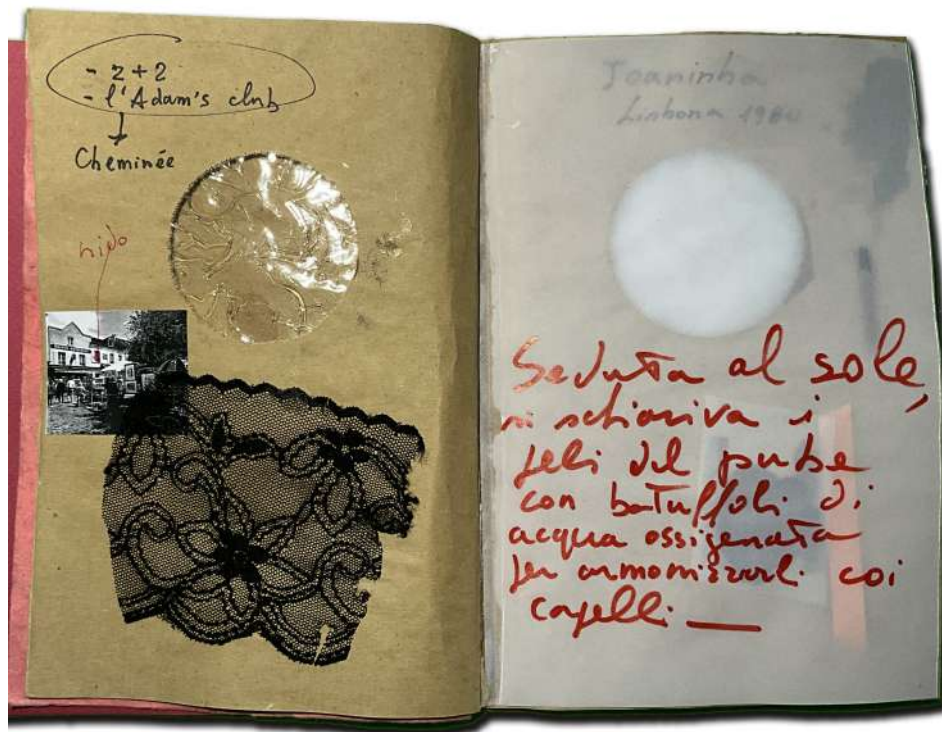 - 2 + 2
- l'Adam's club
Cheminée
nido
Joaninha
Lisbona 198
Seduta al sole,
si schiariva i
peli del pube
con batuffoli di
acqua ossigenata
per armonizzarli coi
capelli